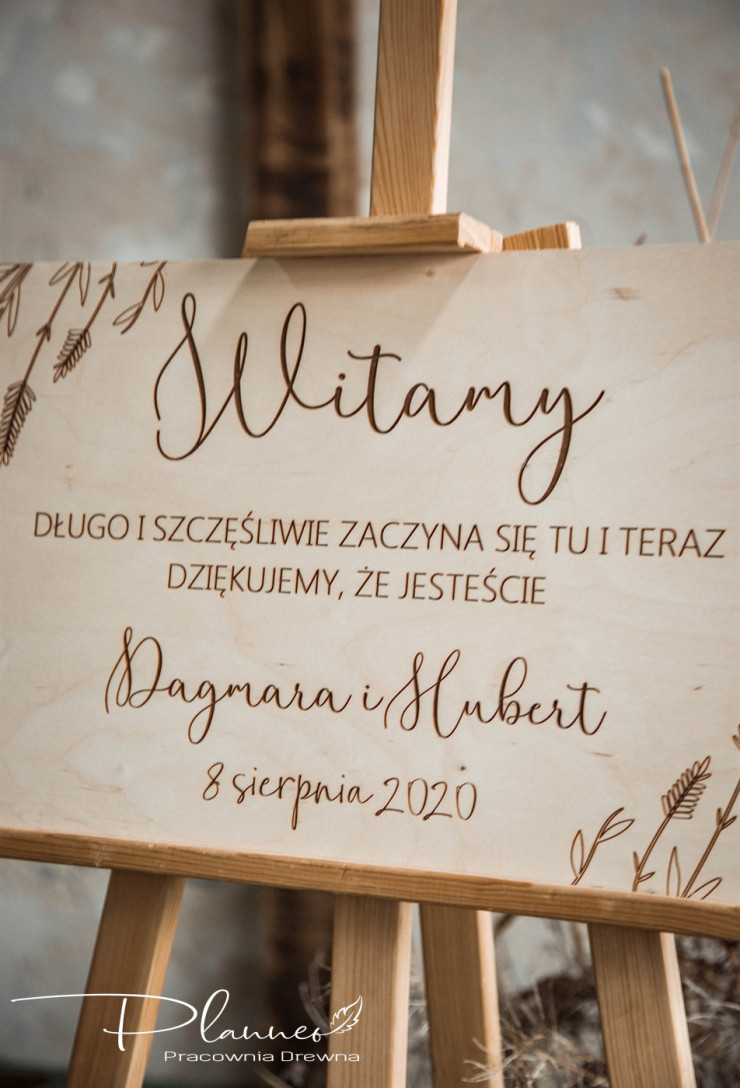 Witamy
DŁUGO I SZCZĘŚLIWIE ZACZYNA SIĘ TU I TERAZ
DZIĘKUJEMY, ŻE JESTEŚCIE
Dagmara i Hubert
8 sierpnia 2020
Planneo
Pracownia Drewna